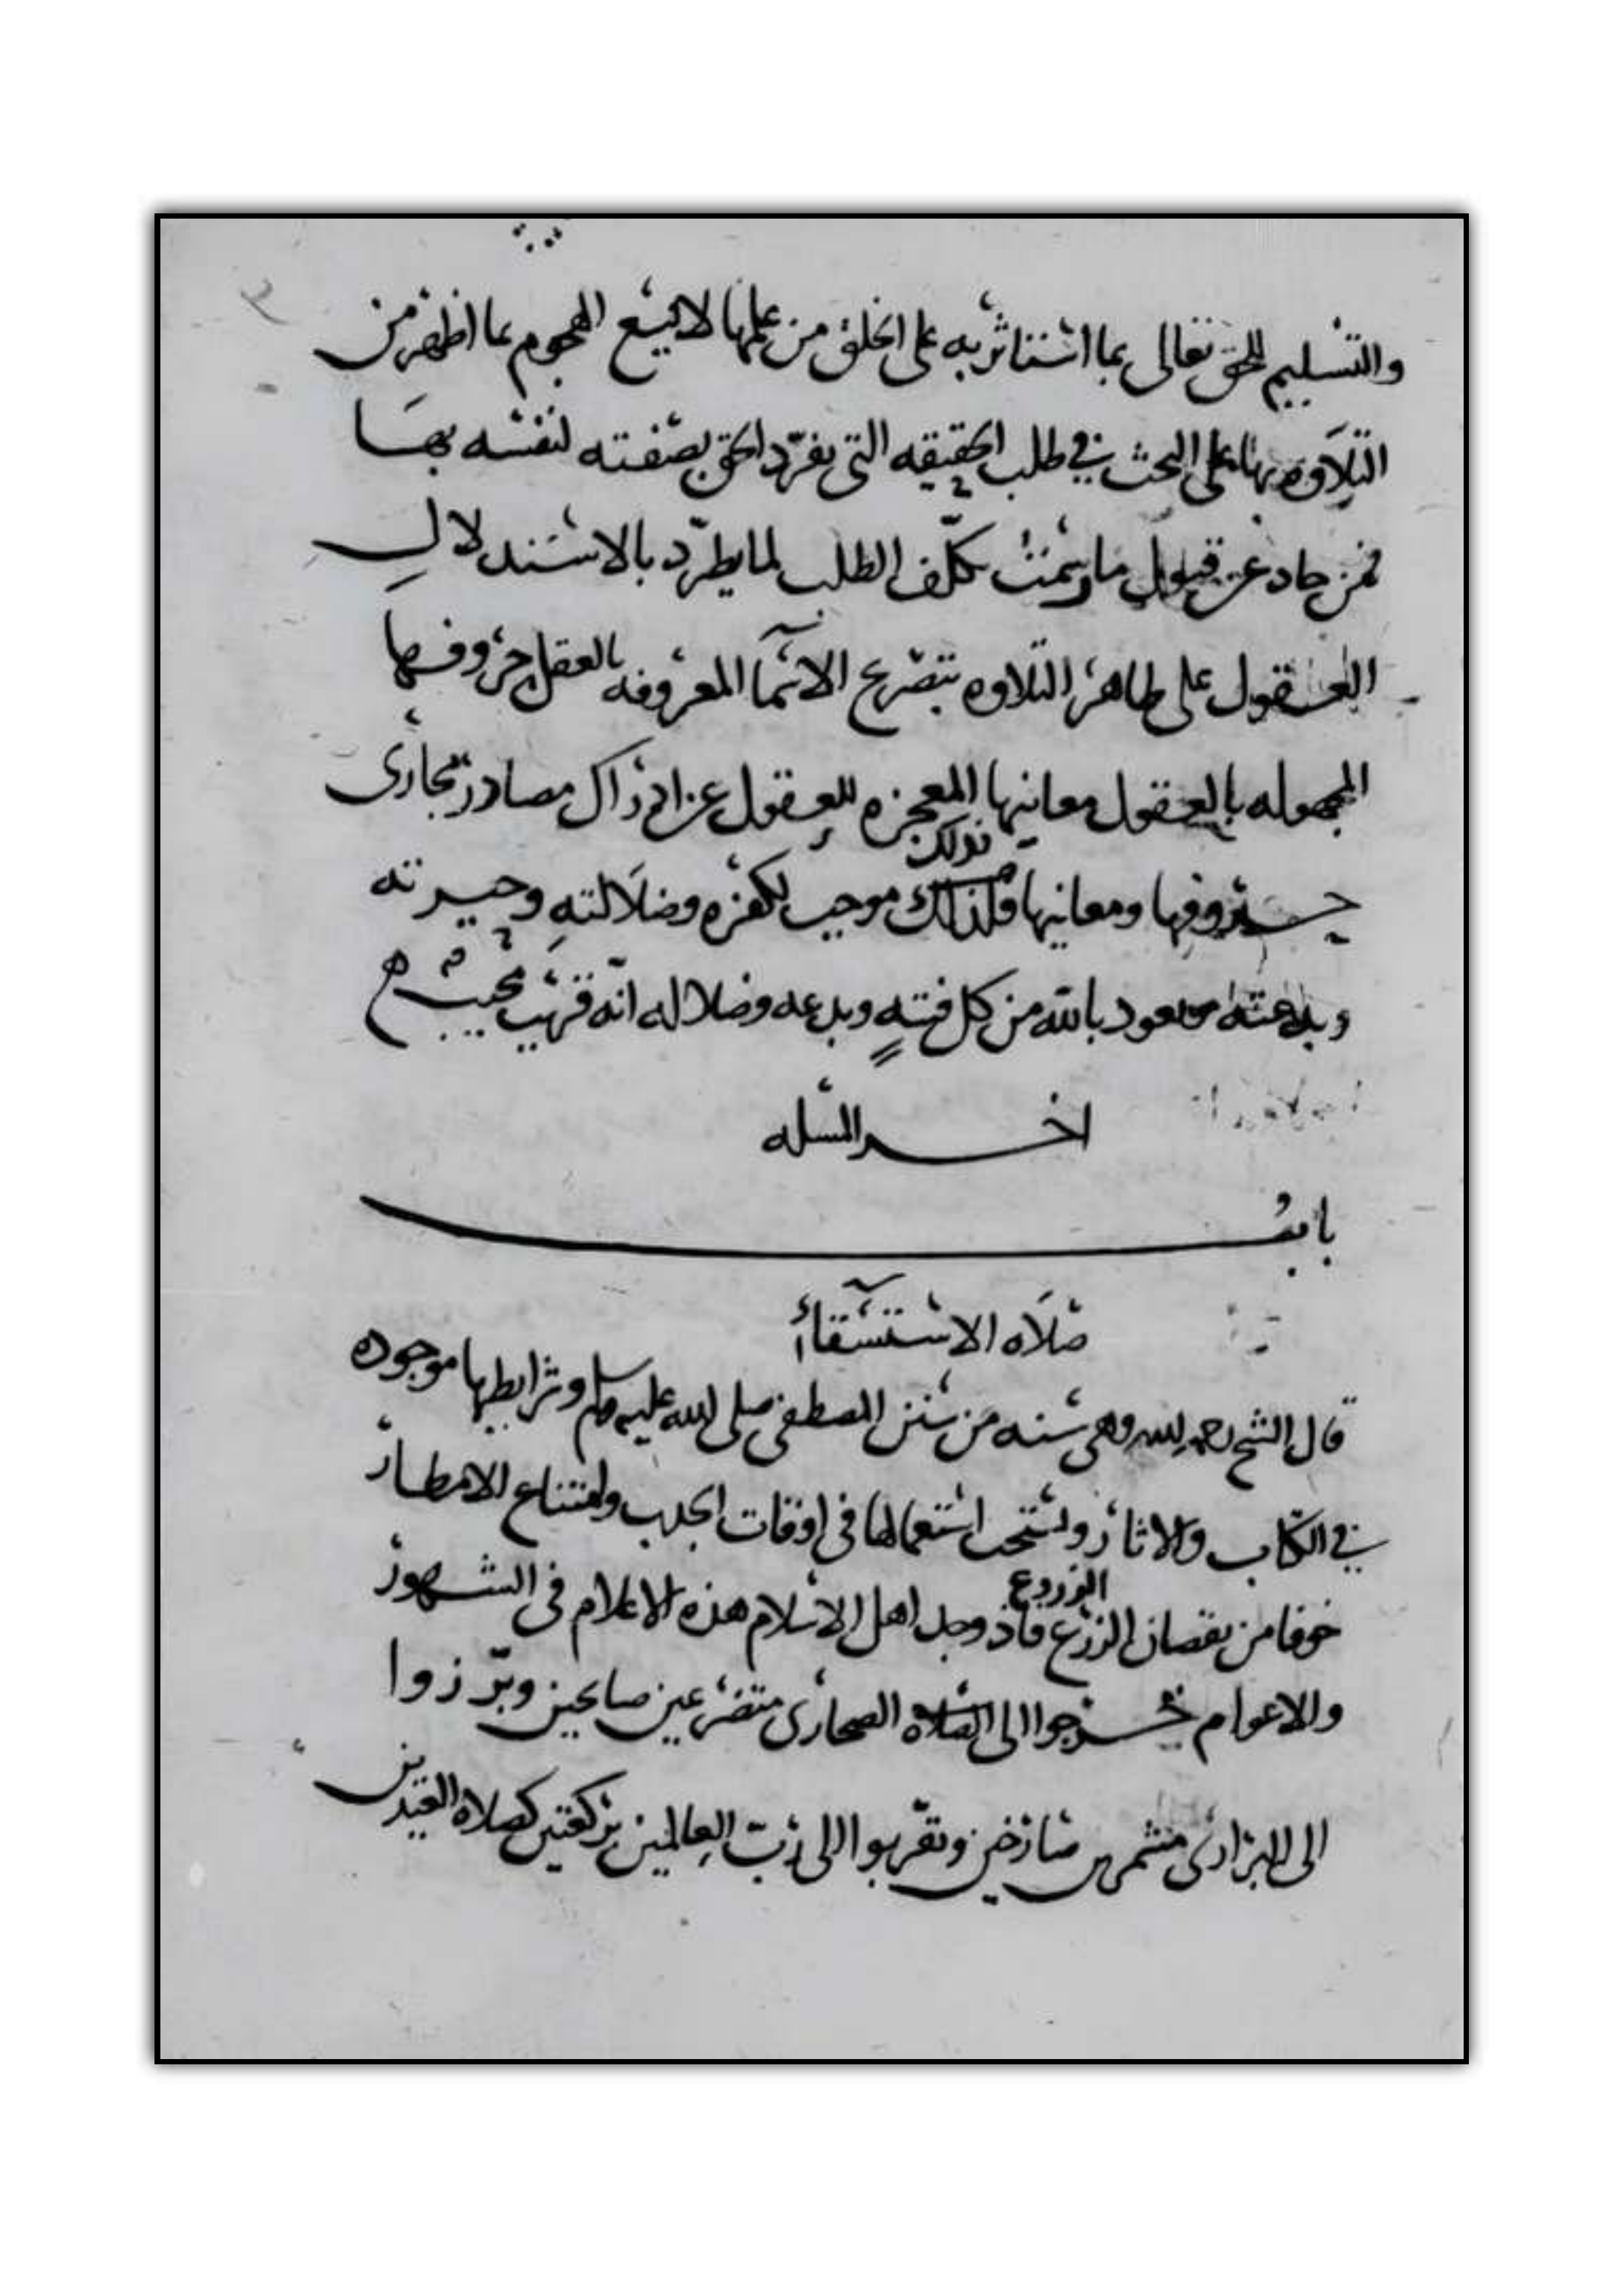 والتسليم للحق تعالى بما استاثر به على الخلق من علمها لا يسع الهجوم بما اظهر من
التلاوه بها على البحث في طلب الحقيقه التي تفرد الحق بصفته لنفسه بها
فمن حاد عن قبول ما رسمت تكلف الطلب لما يطرد بالاستدلال
العقول على ظاهر التلاوه بتصريح الاسما المعروفه بالعقل حروفها
المجهوله بالعقول معانيها المعجزه للعقول عن ادراك مصادر مجارى
حروفها ومعانيها فلذلك موجب لكفره وضلالته وحيرته
وبدعته ونعود بالله من كل فتنه وبدعه وضلاله انه قريب مجيب
اخر المسله
باب
صلاه الاستسقاء
قال الشيخ رحمه الله وهى سنه من سنن المصطفى صلى الله عليه وسلم وشرايطها موجوده
في الكتاب والاثار ويستحب استعمالها فى اوقات الجدب وامتناع الامطار
الزروع
خوفا من نقصان الزرع فاذ وجد اهل الاسلام هذه الاعلام فى الشهور
والاعوام خرجوا الى الصحارى متضرعين صايحين وبرزوا
الى البرارى مشمرين صارخين وتقربوا الى رب العالمين بركعتين كصلاه العيدين